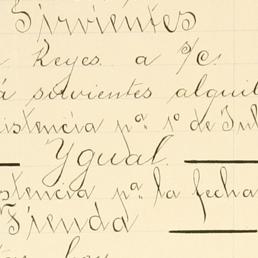 Sirvientes
Reyes. a P/c.
á sirvientes alquil
istencia pª. 1º de Jul
Ygual.
stencia pª. la fecha
Tienda